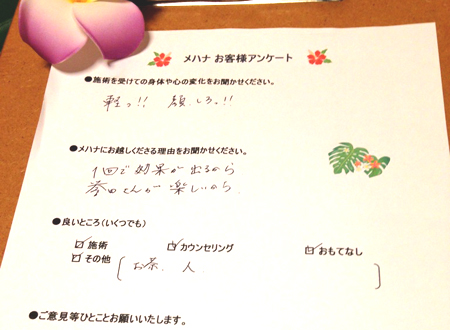 メハナ お客様アンケート
●施術を受けての身体や心の変化をお聞かせください。
軽っ!! 顔しろっ!!
●メハナにお越しくださる理由をお聞かせください。
1回で効果が出るから
さんが楽しいから
●良いところ(いくつでも)
☑施術 ☑カウンセリング ☑おもてなし
☑その他 [ お茶、人 ]
●ご意見等ひとことお願いいたします。